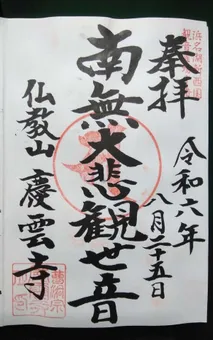 奉拝
令和六年
八月二十五日
南無大悲観世音
仏教山慶雲寺